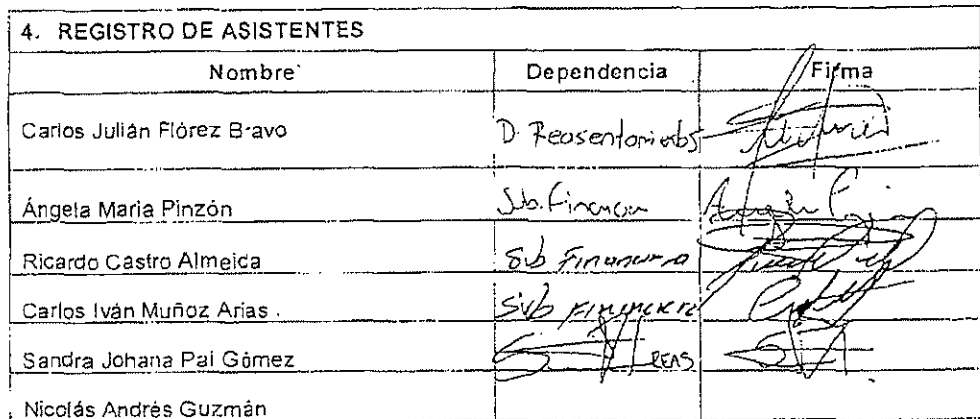 4. REGISTRO DE ASISTENTES
Nombre Dependencia Firma
Carlos Julián Flórez Bravo D. Reasentamientos
Ángela María Pinzón Sub. Financiera
Ricardo Castro Almeida Sub Financiera
Carlos Iván Muñoz Arias. Sub Financiera
Sandra Johana Pai Gómez REAS
Nicolás Andrés Guzmán